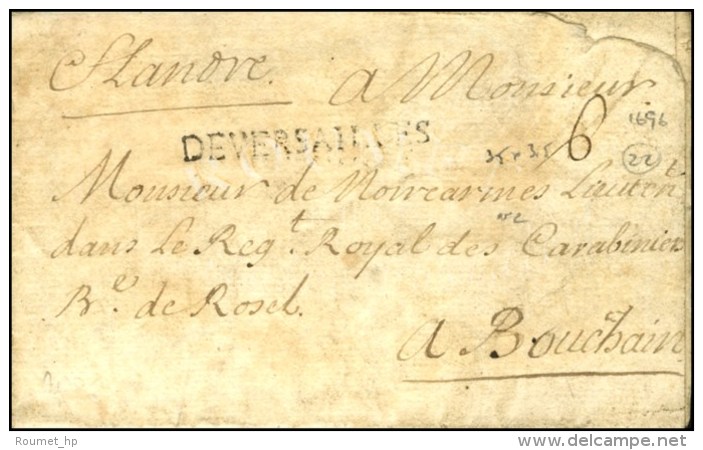 Flandre. a Monsieur
DEVERSAILLES 6 1696
22
Monsieur de Noircarmes Lauten^t
dans Le Reg^t. Royal des Carabiniers
B^e. de Rosel.
a Bouchain
Roumet_hp
www.delcampe.net